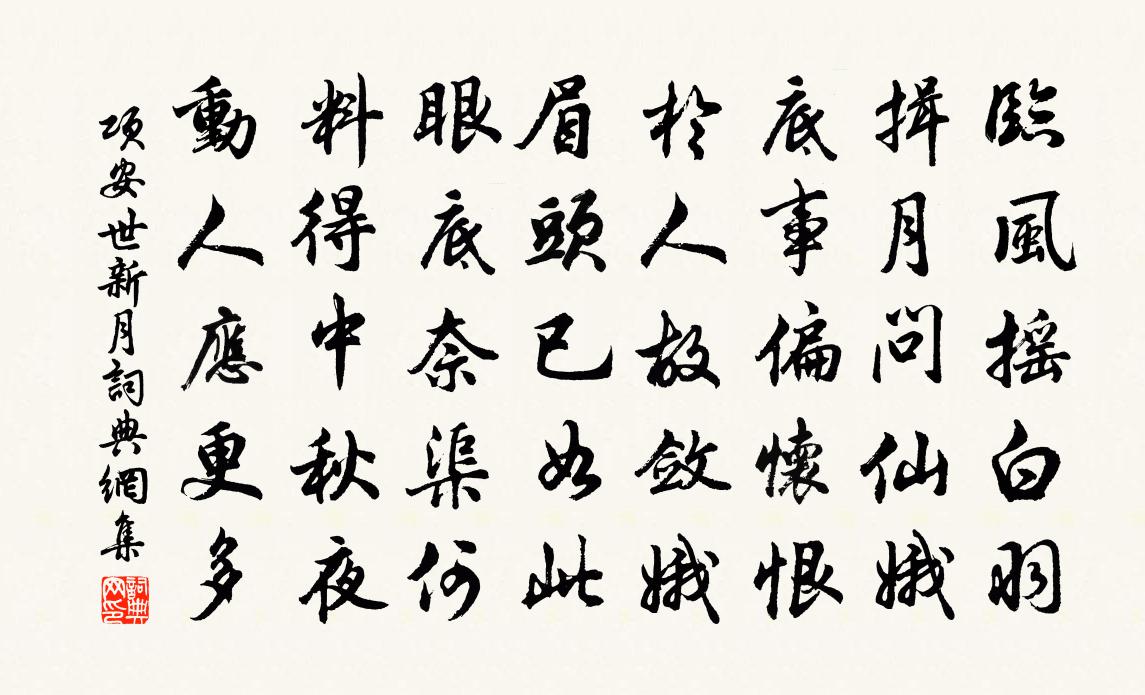 臨風搖白羽
揖月問仙娥
底事偏懷恨
於人故斂娥
眉頭已如此
眼底奈渠何
料得中秋夜
動人應更多
項安世新月詞典網集
詞典網印